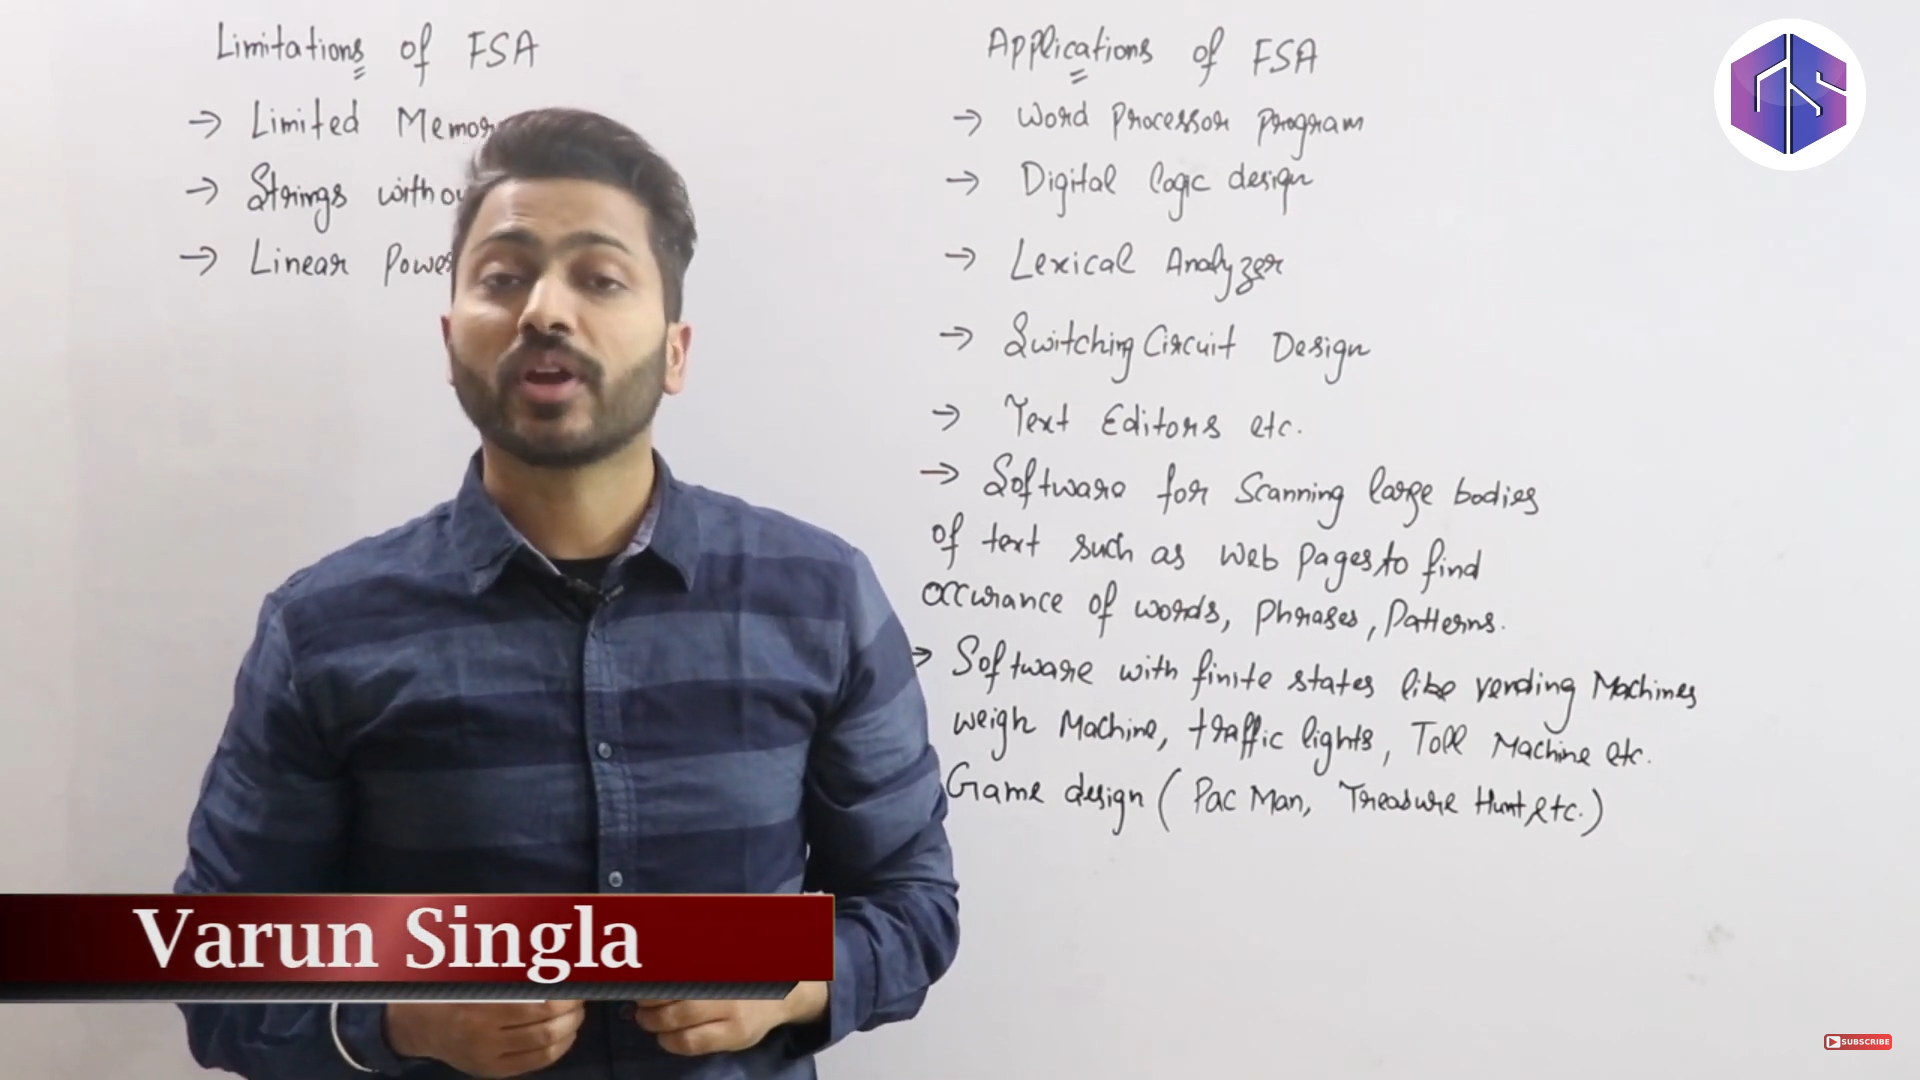 Limitations of FSA
→ Limited Memor
→ Strings withou
→ Linear Power
Applications of FSA
→ Word Processor Program
→ Digital logic design
→ Lexical Analyzer
→ Switching Circuit Design
→ Text Editors etc.
→ Software for Scanning large bodies
of text such as web pages to find
occurance of words, Phrases, Patterns.
→ Software with finite states like vending Machines
weigh Machine, traffic lights, Toll Machine etc.
Game design (Pac Man, Treasure Hunt, etc.)
GS
Varun Singla
SUBSCRIBE